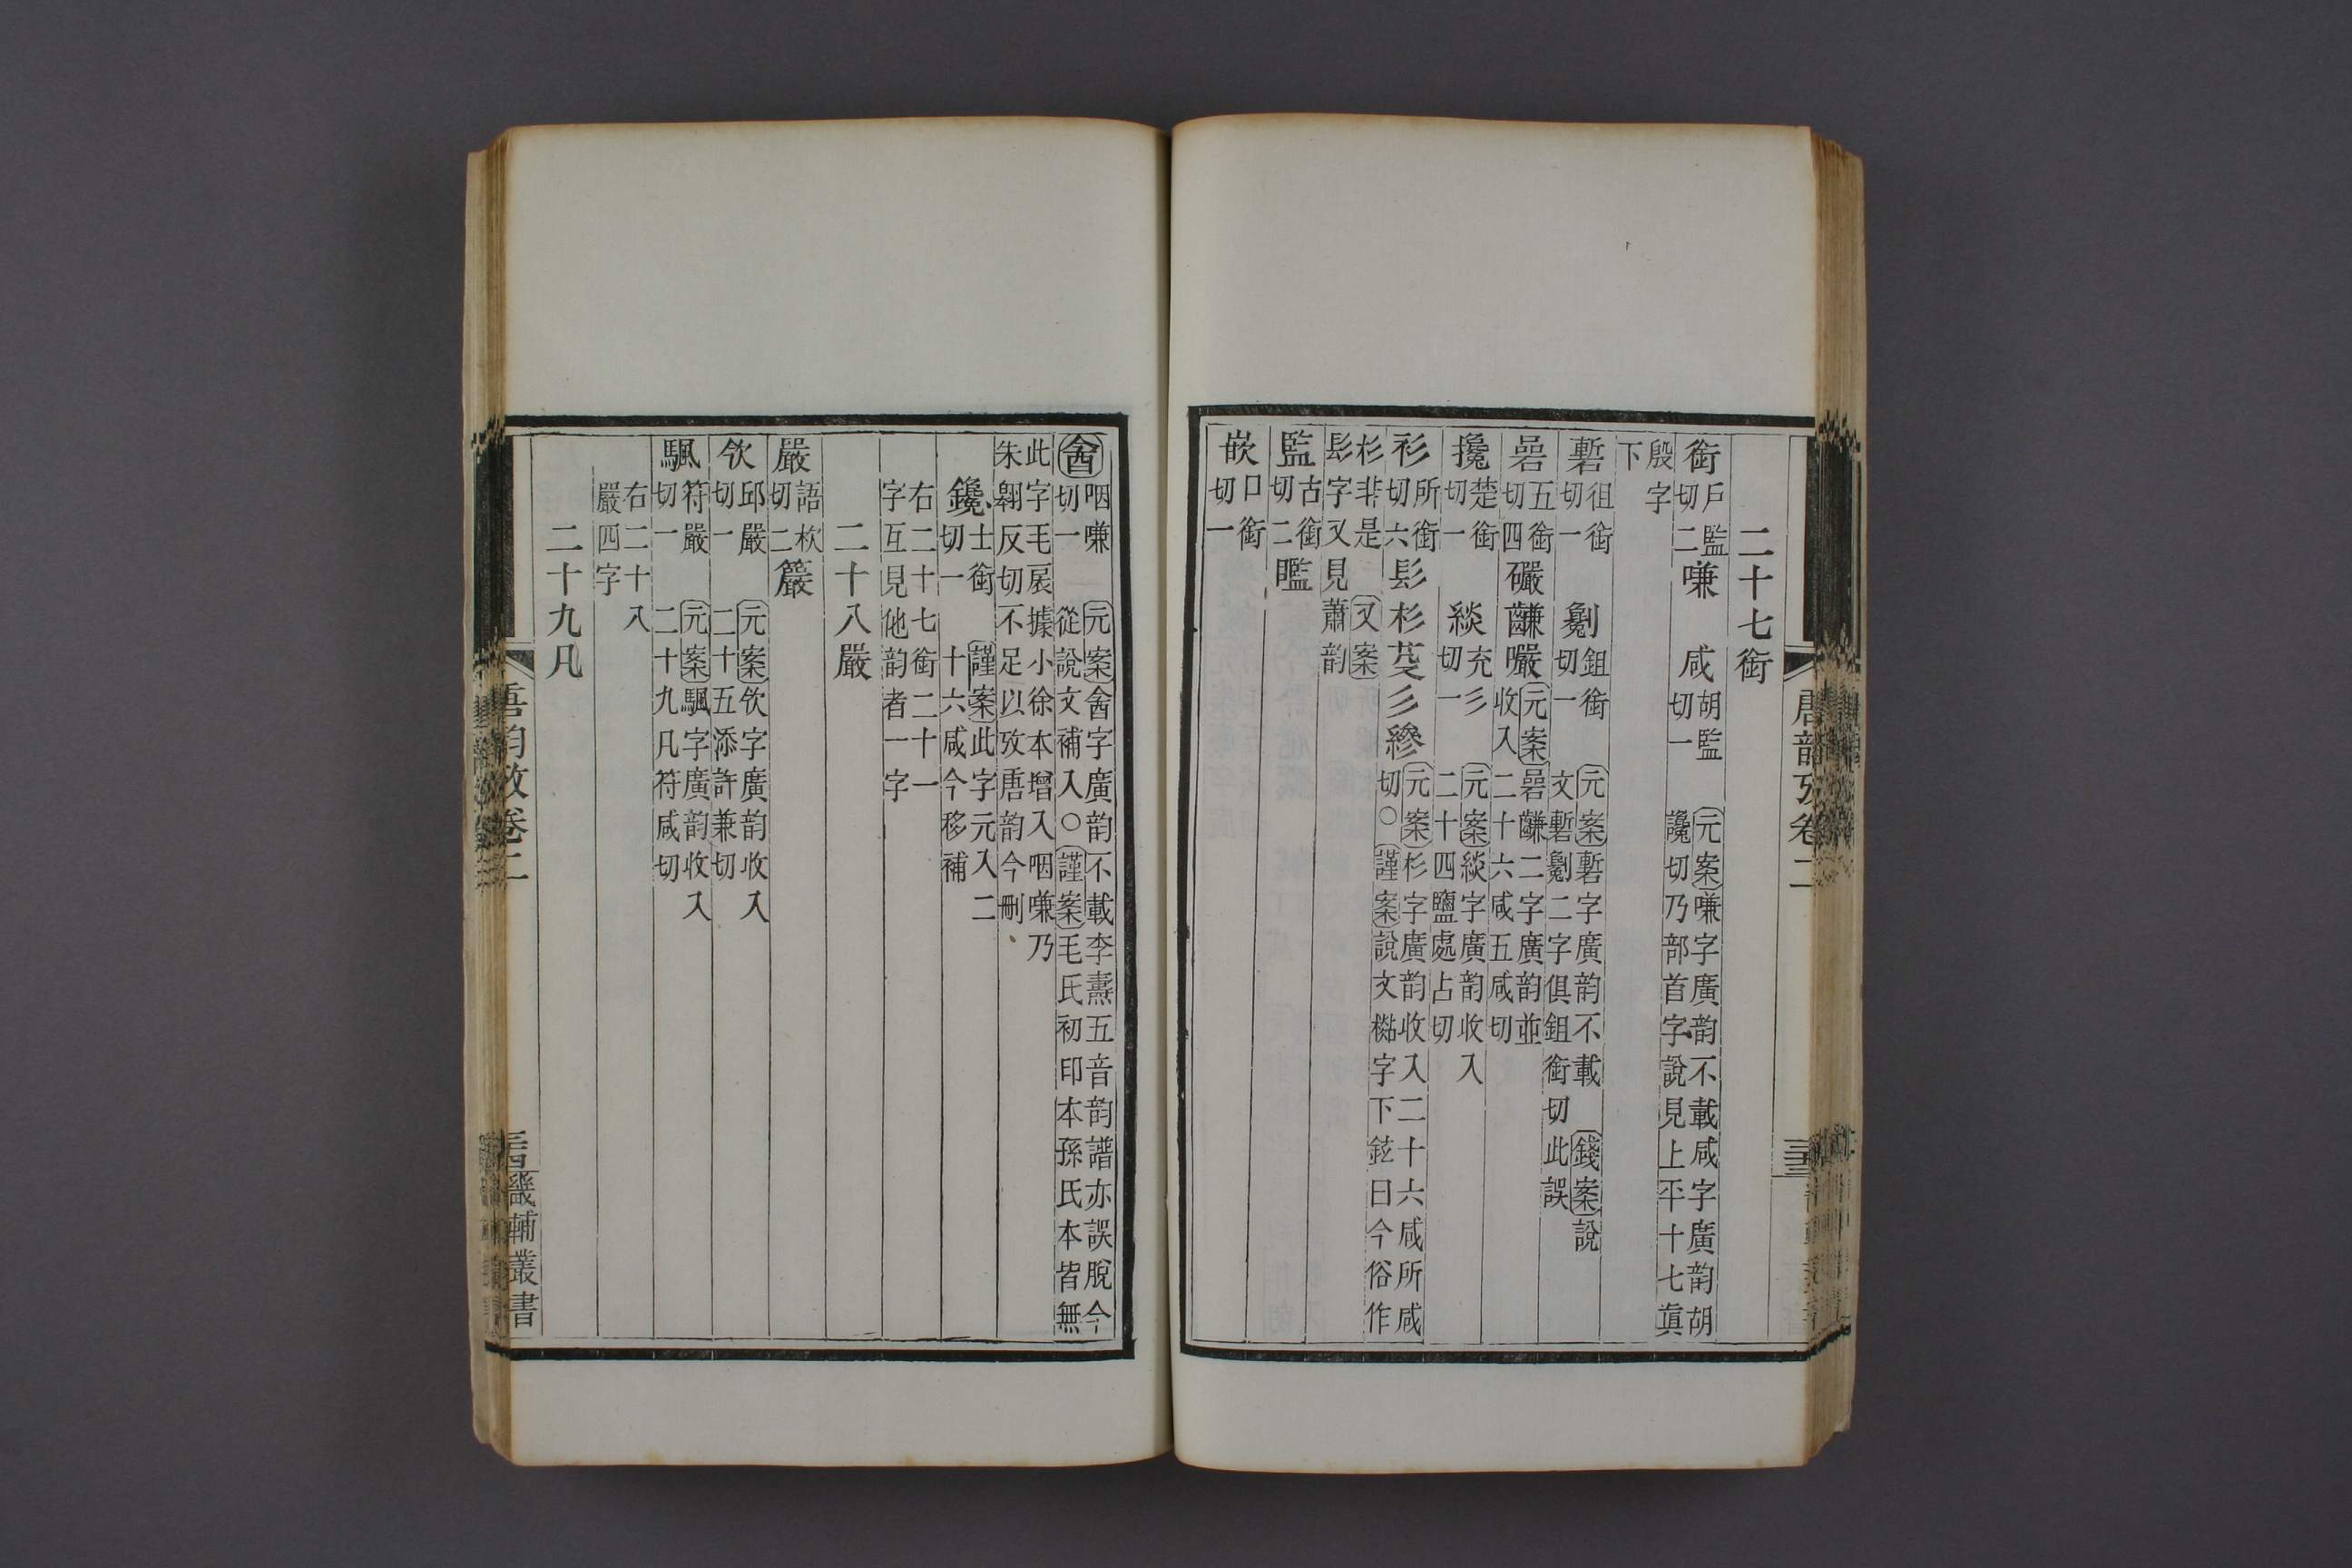 唐韵攷卷二
二十七銜
銜戶監切二嗛 咸胡監切一 元案嗛字廣韵不載咸字廣韵胡讒切乃部首字說見上平十七眞
殷字下
磛徂銜切一 劖鉏銜切一 元案磛字廣韵不載 錢案說文磛劖二字俱鉏銜切此誤
碞五銜切四礹䶢巗元案碞䶢二字廣韵並收入二十六咸五咸切
攙楚銜切一 緂充彡切一 元案緂字廣韵收入二十四鹽處占切
衫所銜切六髟杉芟彡縿元案杉字廣韵收入二十六咸所咸切○謹案說文字下鉉曰今俗作
杉非是 又案髟字又見蕭韵
監古銜切二
嵌口銜切一
㽉咽嗛切一 元案㽉字廣韵不載李燾五音韵譜亦誤脫今從說文補入○謹案毛氏初印本孫氏本皆無
此字毛扆據小徐本增入咽嗛乃朱翱反切不足以攷唐韵今刪
鑱士銜切一 謹案此字元入二十六咸今移補
右二十七銜二十一字互見他韵者一字
二十八嚴
嚴語杴切二籢
欦邱嚴切一 元案欦字廣韵收入二十五添許兼切
颿符嚴切一 元案颿字廣韵收入二十九凡符咸切
右二十八嚴四字
二十九凡
唐韵攷卷二
畿輔叢書